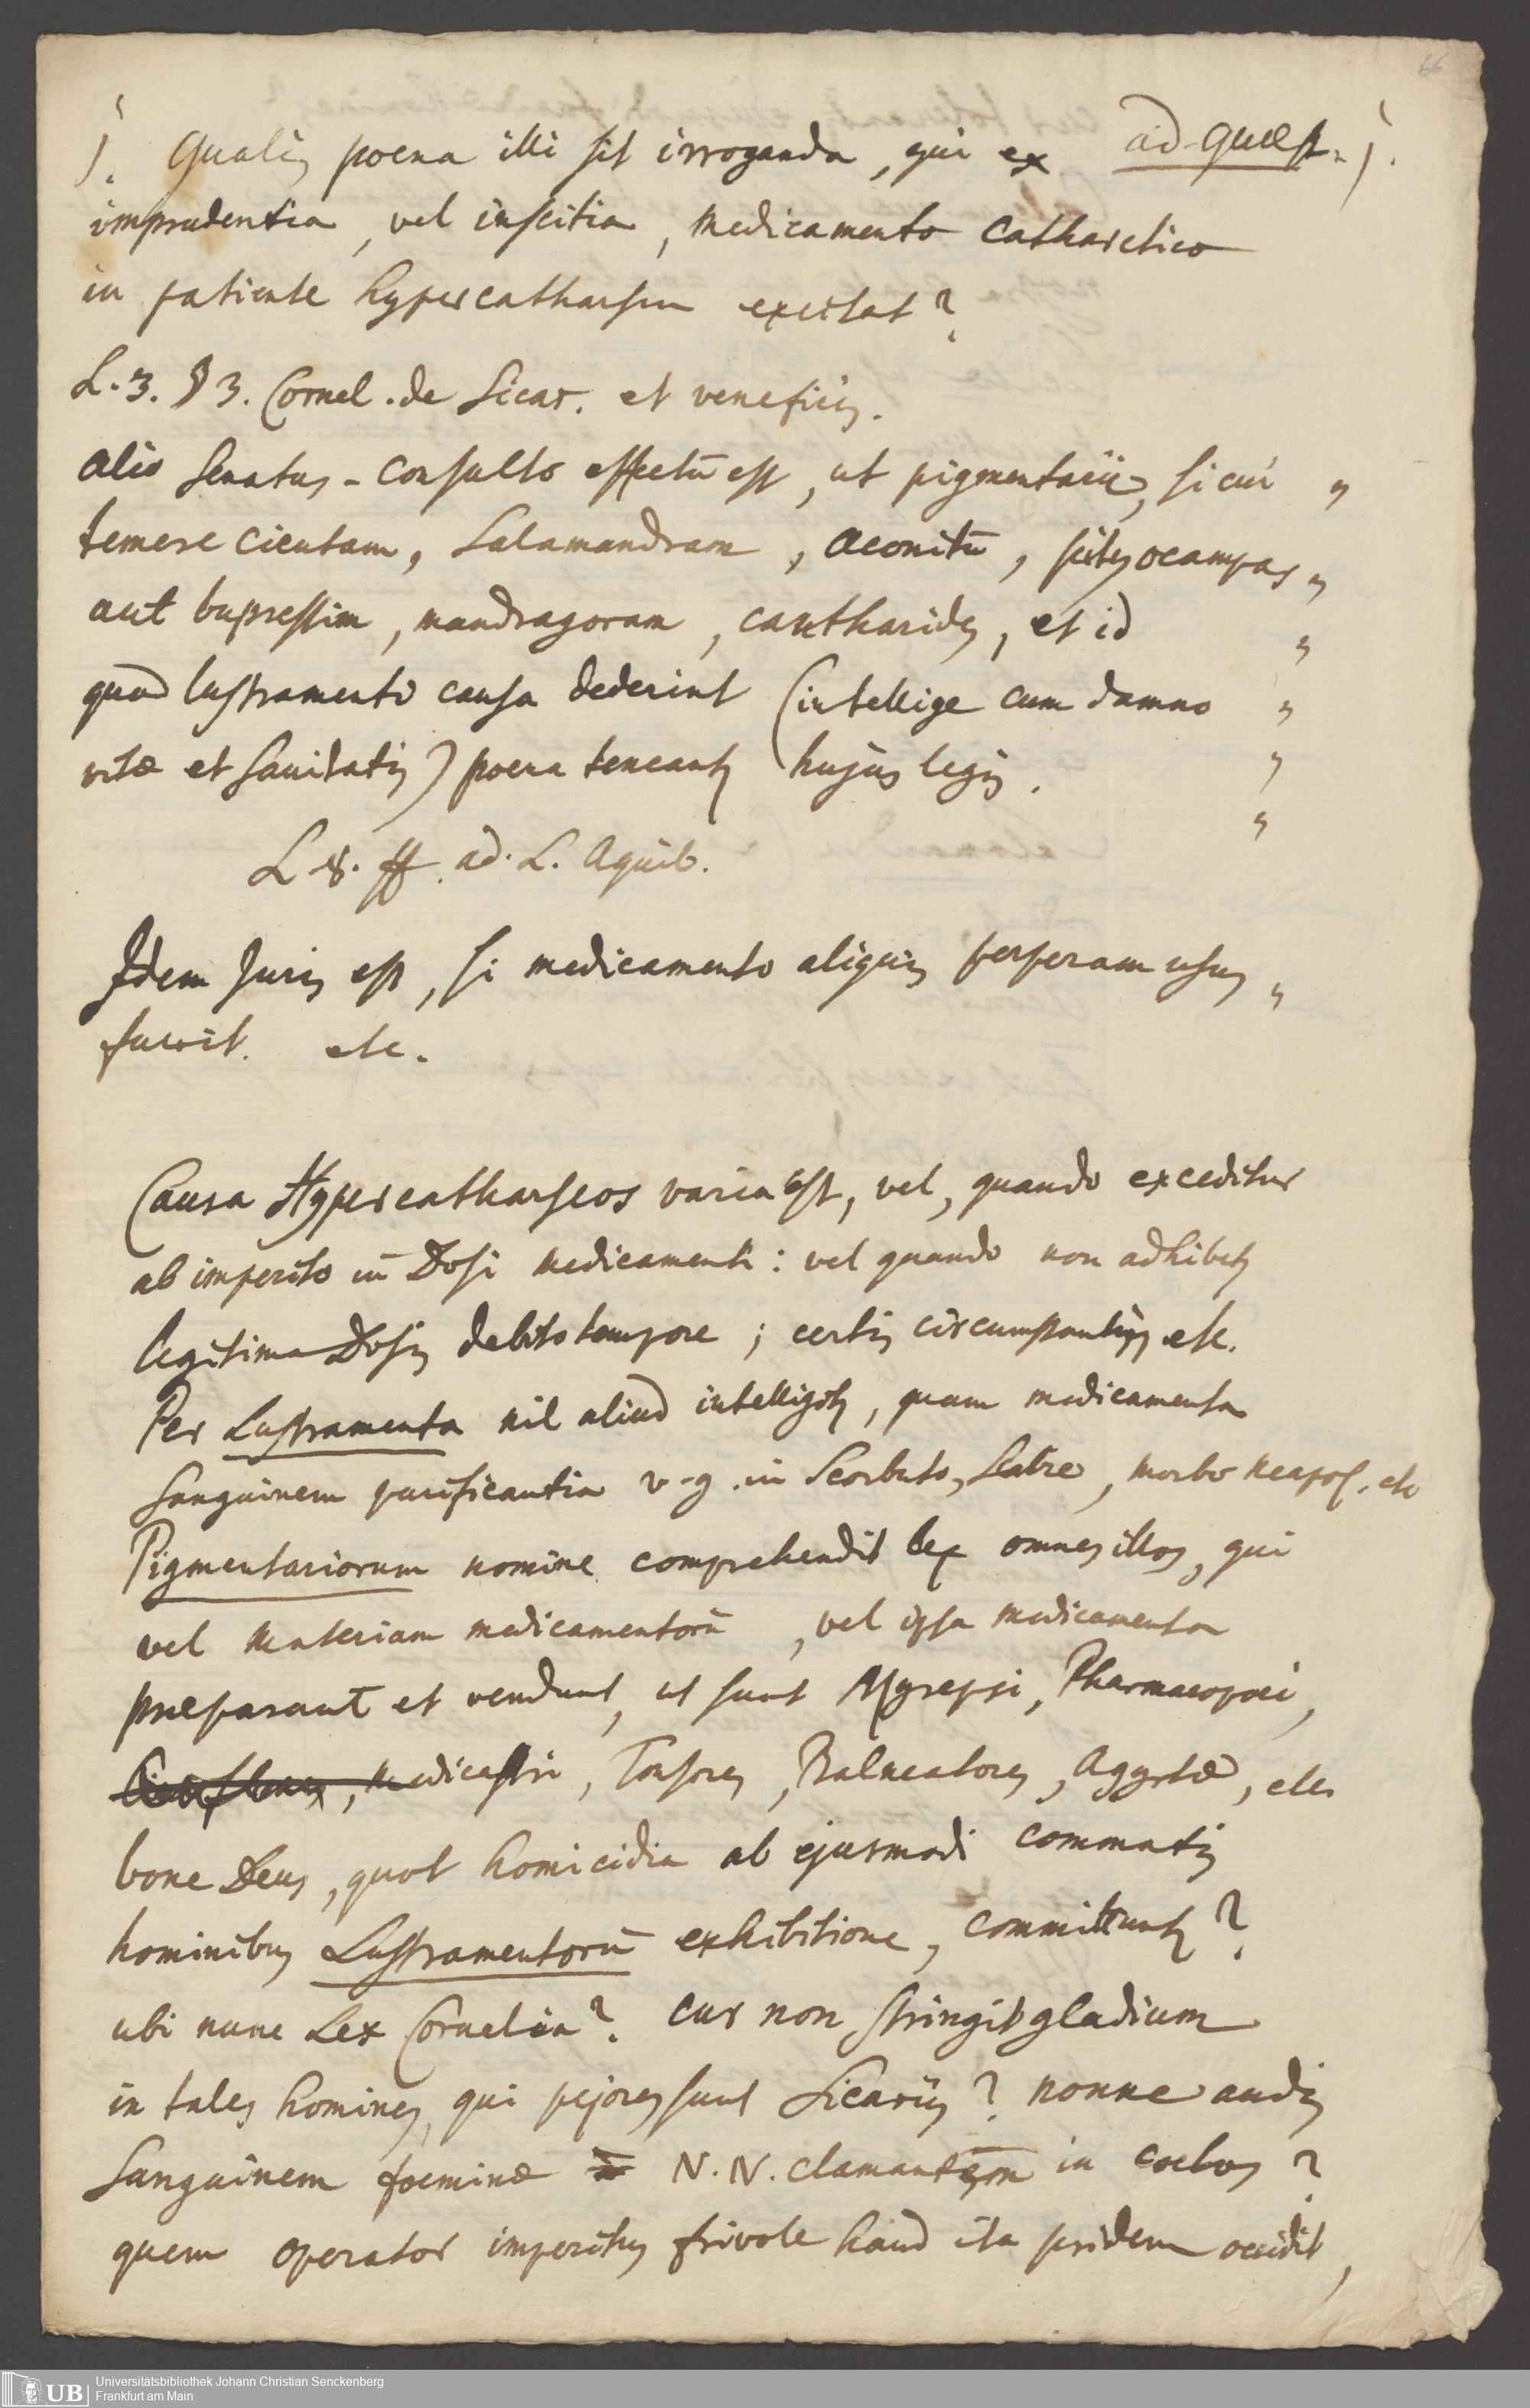 66
j. Qualis poena illi sit irroganda, qui ex ad quæst. j.
imprudentia, vel inscitia, medicamento Cathartico
in patiente hypercatharsin excitat?
L. 3. § 3. Cornel. de Sicar. et veneficis.
alio Senatus-Consulto effectū est, ut pigmentarii, si cui "
temere cicutam, Salamandram, Aconitū, pityocampas "
aut buprestim, mandragoram, cantharides, et id "
quod lustramenti causa dederint (intellige cum damno "
vitæ et sanitatis) poena teneantur hujus legis. "
"
L. 8. ff. ad. L. Aquil.
Idem Juris est, si medicamento aliquis perperam usus "
fuerit. etc.
Causa Hypercatharseos varia est, vel, quando exceditur
ab imperito in Dosi medicamenti: vel quando non adhibetur
legitima Dosis debito tempore; certis circumstantiis etc.
Per Lustramenta nil aliud intelligitur, quam medicamenta
Sanguinem purificantia v.g. in Scorbuto, Scabie, morbo neapol. etc
Pigmentariorum nomine comprehendit lex omnes illos, qui
vel materiam medicamentorū, vel ipsa medicamenta
præparant et vendunt, ut sunt Myrepsi, Pharmacopoei,
medicastri, Tonsores, Balneatores, Agyrtæ, etc.
bone Deus, quot homicidia ab ejusmodi commatis
hominibus Lustramentorū exhibitione, committuntur?
ubi nunc Lex Cornelia? cur non stringit gladium
in tales homines, qui pejores sunt Sicariis? nonne audis
Sanguinem foeminæ N.N. clamantem in coelos?
quem operator imperitus frivole haud ita pridem occidit,
UB Universitätsbibliothek Johann Christian Senckenberg
Frankfurt am Main